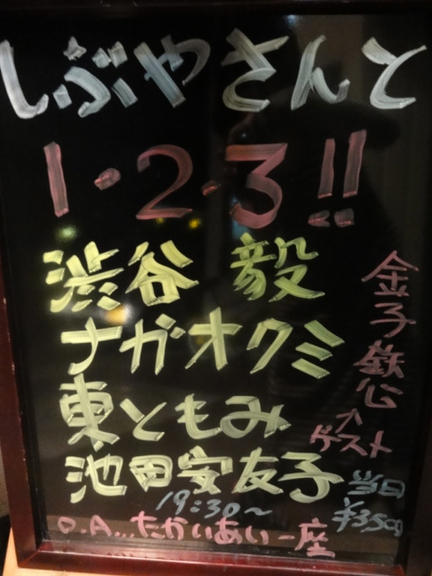 しぶやさんと
1・2・3!!
渋谷 毅
ナガオクミ
東ともみ
池田安友子
金子鉄心
↑
ゲスト
19:30～
当日
¥3,500
O.A...たかいあい一座